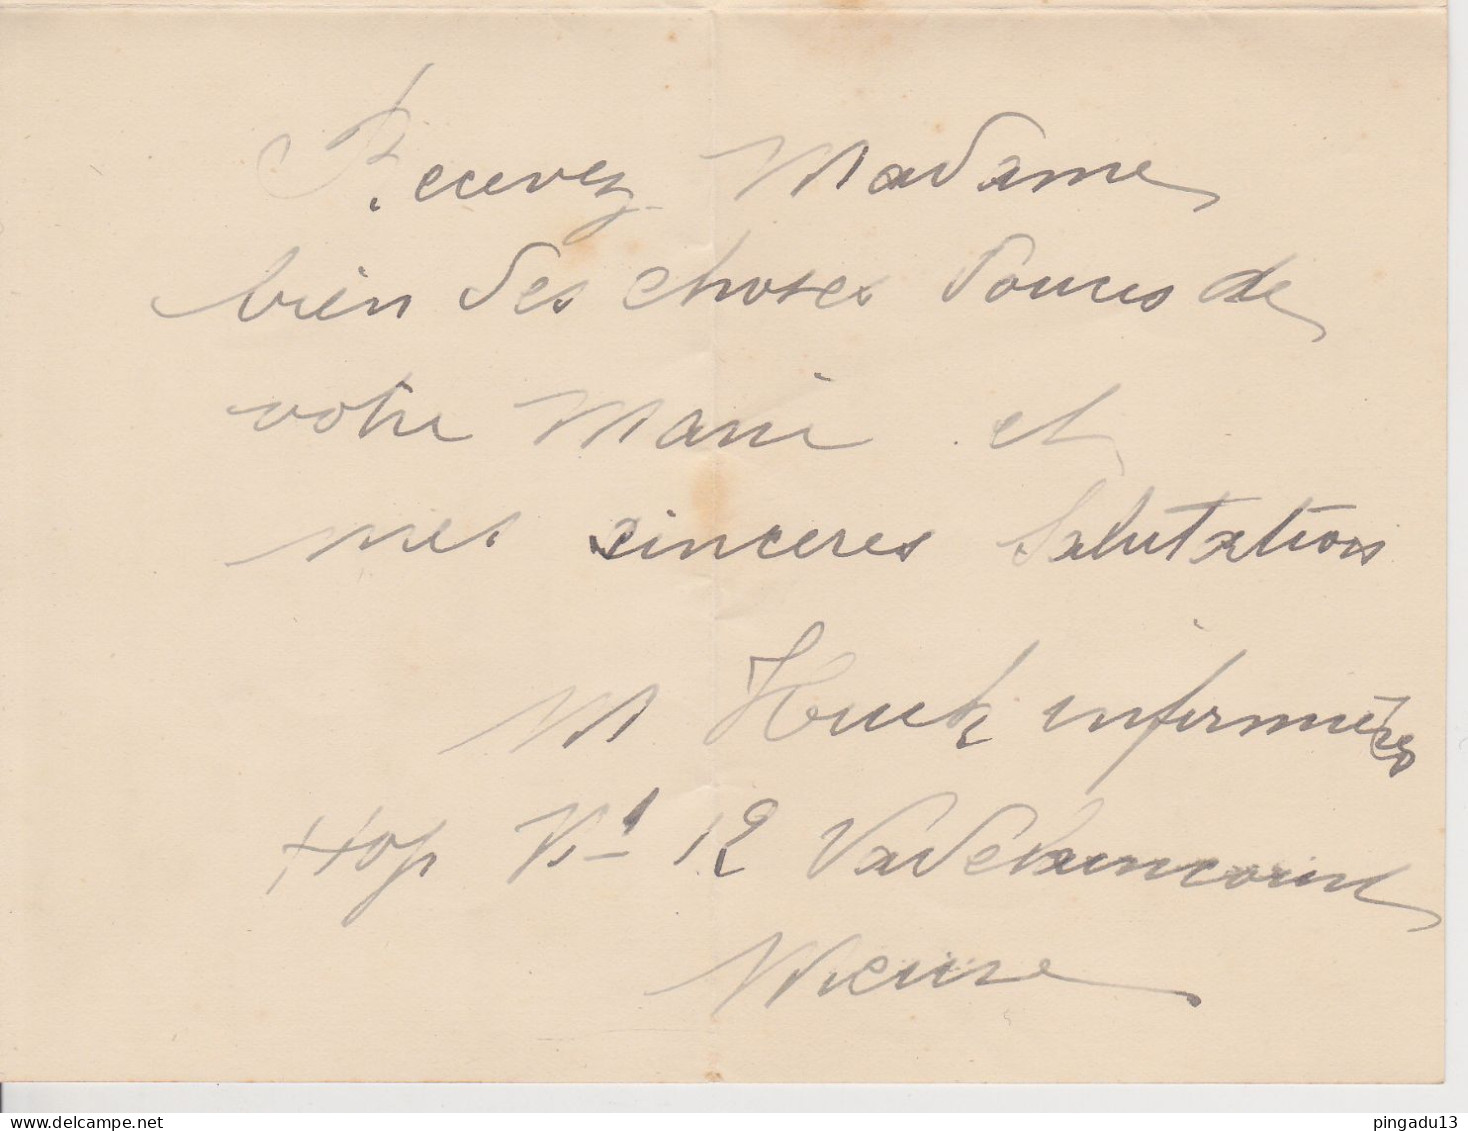 Recevez Madame
bien des choses douces de
votre Marie et
mes sinceres salutations
M Huck infirmière
Hop Vt 12 Vadelaincourt
Meuse
delcampe.net
pingadu13